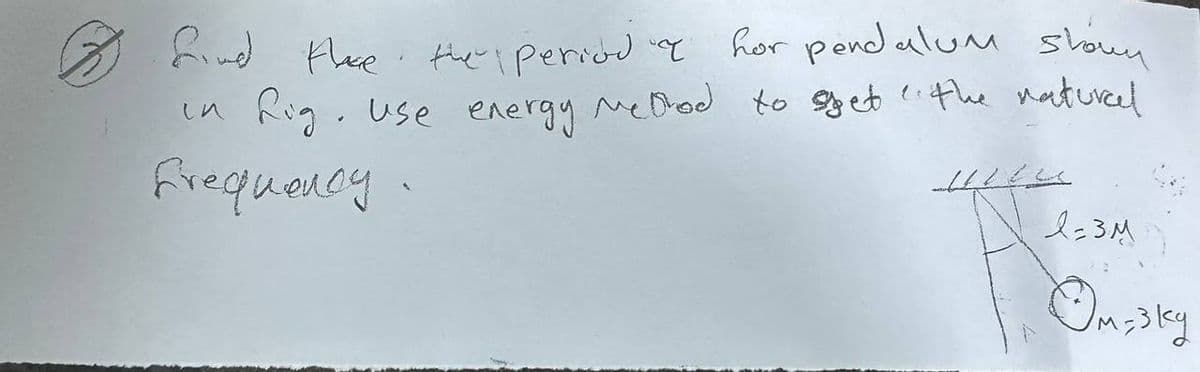 3 find the period for pendalum shown
in fig. use energy method to get the naturel
frequency.
l=3M
M=3kg